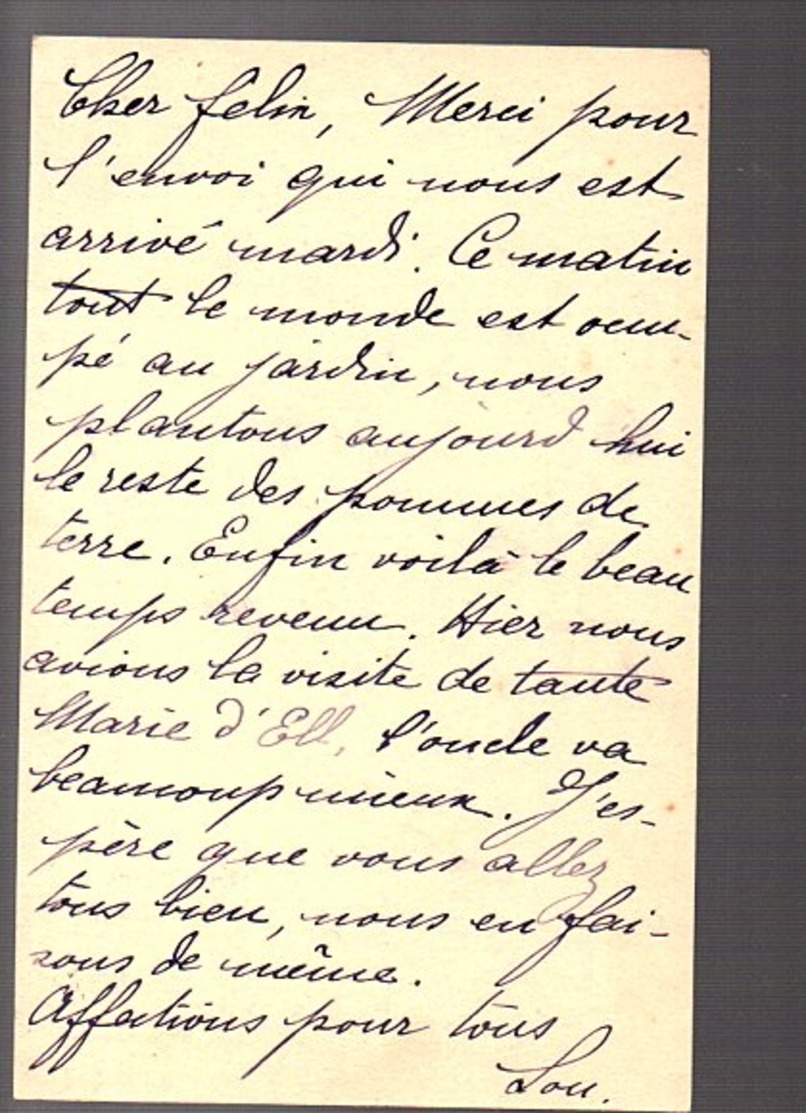 Cher félin, Merci pour
l'envoi qui nous est
arrivé mardi. Ce matin
tout le monde est occu-
pé au jardin, nous
plantons aujourd'hui
le reste des pommes de
terre. Enfin voilà le beau
temps revenu. Hier nous
avions la visite de tante
Marie d'Ell, l'oncle va
beaucoup mieux. J'es-
père que vous allez
tous bien, nous en fai-
sons de même.
Affections pour tous
Lou.